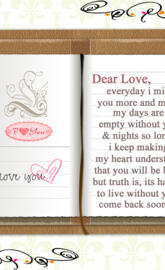 B♥You
love you
Dear Love,
everyday i mi
you more and m
my days are
empty without y
& nights so lon
i keep making
my heart underst
that you will be b
but truth is, its ha
to live without y
come back soon